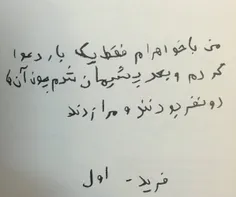 من با خواهرام فقط یک بار دعوا
کردم و بعد پشیمان شدم چون آن ها
دو نفر بودند و مرا زدند
فرید - اول